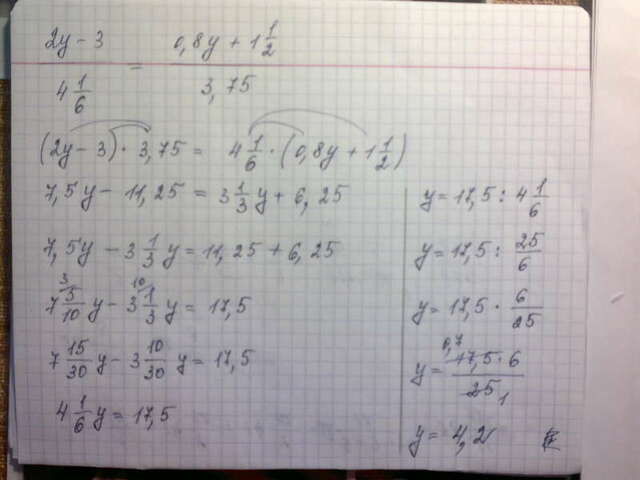 (2y - 3) / (4 1/6) = (0,8y + 1 1/2) / 3,75
(2y - 3) · 3,75 = 4 1/6 · (0,8y + 1 1/2)
7,5y - 11,25 = 3 1/3 y + 6,25
7,5y - 3 1/3 y = 11,25 + 6,25
7 5/10 y - 3 1/3 y = 17,5
7 15/30 y - 3 10/30 y = 17,5
4 1/6 y = 17,5
y = 17,5 : 4 1/6
y = 17,5 : 25/6
y = 17,5 · 6/25
y = 17,5 · 6 / 25
y = 4,2